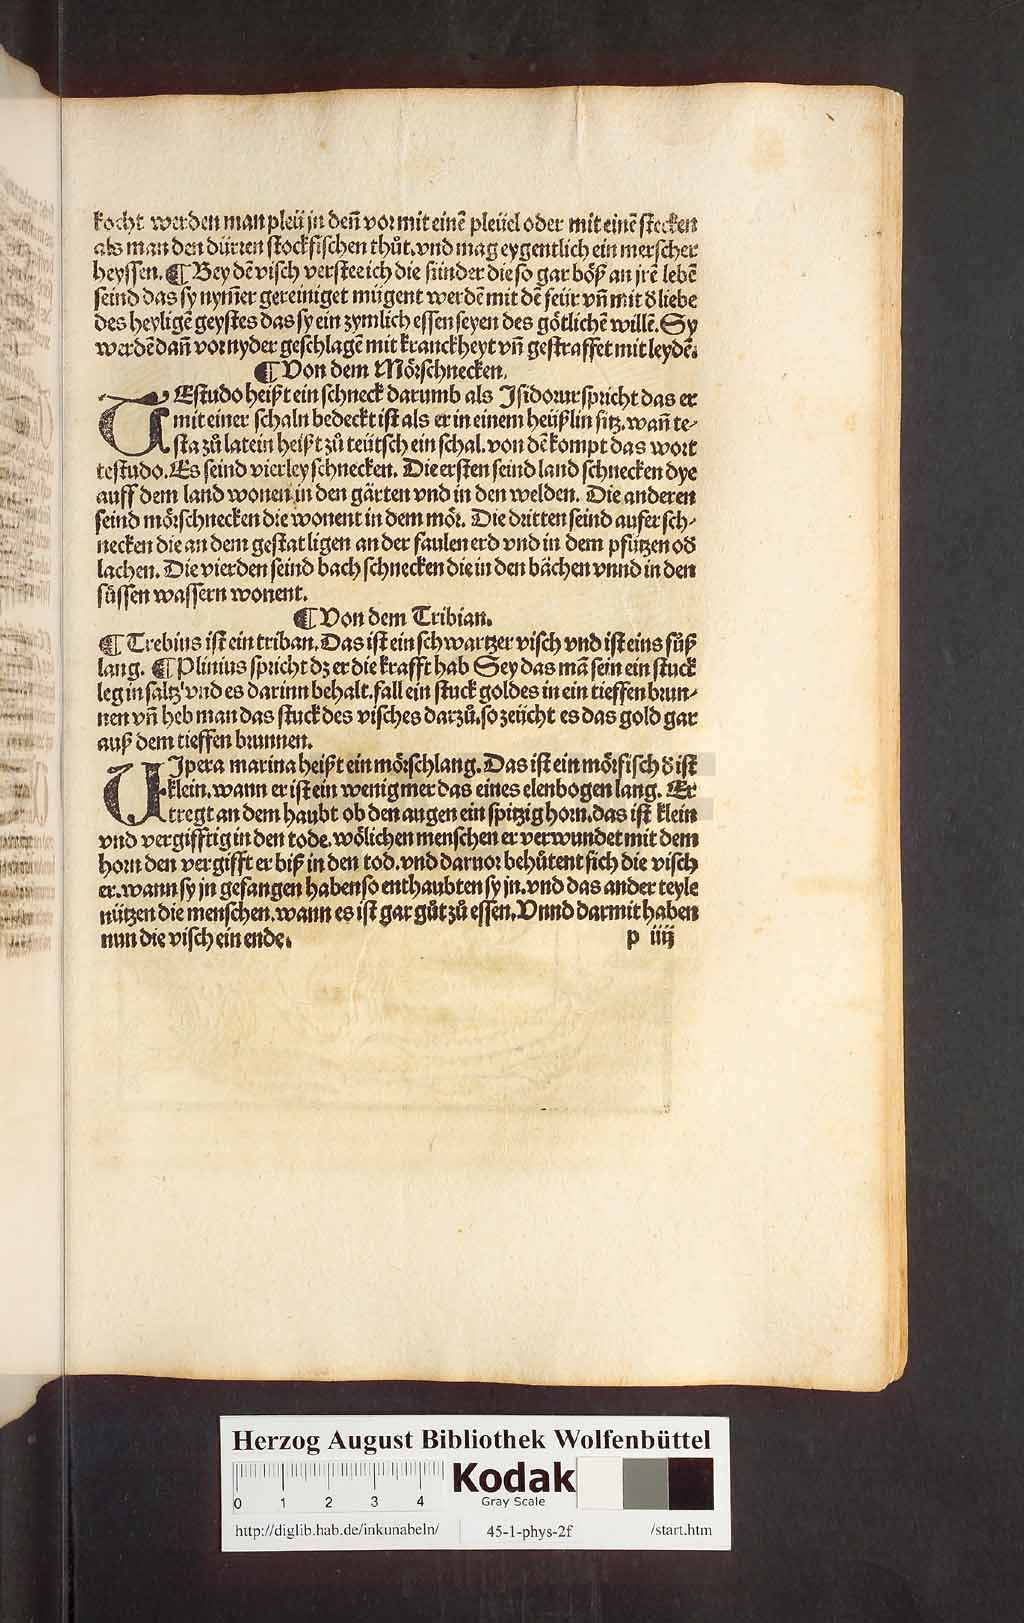 kocht werden man pleü jn deñ vor mit einẽ pleüel oder mit einẽ stecken
als man den dürren stockfischen thůt. vnd mag eygentlich ein merscher
heyssen. ¶ Bey dẽ visch verstee ich die sünder die so gar böß an jrẽ lebẽ
seind das sy nym̃er gereiniget mügent werdẽ mit dẽ feür vñ mit d̕ liebe
des heyligẽ geystes das sy ein zymlich essen seyen des götlichẽ willẽ. Sy
werdẽ dañ vor nyder geschlagẽ mit kranckheyt vñ gestraffet mit leydẽ.
¶ Von dem Mörschnecken.
TEstudo heißt ein schneck darumb als Isidorus spricht das er
mit einer schaln bedeckt ist als er in einem heüßlin sitz. wañ te-
sta zů latein heißt zů teütsch ein schal. von dẽ kompt das wort
testudo. Es seind vierley schnecken. Die ersten seind land schnecken dye
auff dem land wonen in den gärten vnd in den welden. Die anderen
seind mörschnecken die wonent in dem mör. Die dritten seind aufer sch-
necken die an dem gestat ligen an der faulen erd vnd in dem pfützen od̕
lachen. Die vierden seind bach schnecken die in den bächen vnnd in den
süssen wassern wonent.
¶ Von dem Tribian.
¶ Trebius ist ein triban. Das ist ein schwartzer visch vnd ist eins fůß
lang. ¶ Plinius spricht dz er die krafft hab Sey das mã sein ein stuck
leg in saltz vnd es darinn behalt. fall ein stuck goldes in ein tieffen brun-
nen vñ heb man das stuck des visches darzů. so zeücht es das gold gar
auß dem tieffen brunnen.
VIpera marina heißt ein mörschlang. Das ist ein mörfisch d̕ ist
klein. wann er ist ein wenig mer das eines elenbogen lang. Er
tregt an dem haubt ob den augen ein spitzig horn. das ist klein
vnd vergifftig in den tode. wölichen menschen er verwundet mit dem
horn den vergifft er biß in den tod. vnd darnor behůtent sich die visch
er. wann sy jn gefangen haben so enthaubten sy jn. vnd das ander teyle
nützen die menschen. wann es ist gar gůt zů essen. Vnnd darmit haben
nun die visch ein ende.
p iiij
Herzog August Bibliothek Wolfenbüttel
0 1 2 3 4
Kodak
Gray Scale
http://diglib.hab.de/inkunabeln/ 45-1-phys-2f /start.htm